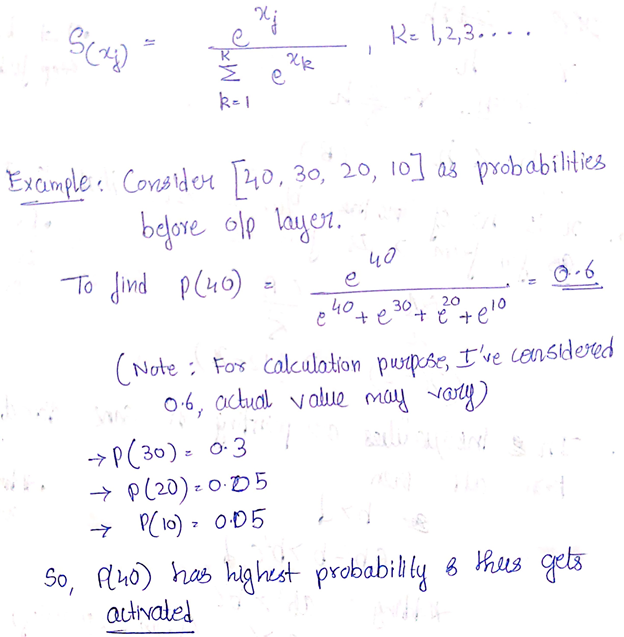 S(xj) = e^xj / K Σ k=1 e^xk , K = 1,2,3....
Example: Consider [40, 30, 20, 10] as probabilities
before o/p layer.
To find P(40) = e^40 / e^40 + e^30 + e^20 + e^10 = 0.6
(Note: For calculation purpose, I've considered
0.6, actual value may vary)
→ P(30) = 0.3
→ P(20) = 0.05
→ P(10) = 0.05
So, P(40) has highest probability & thus gets
activated